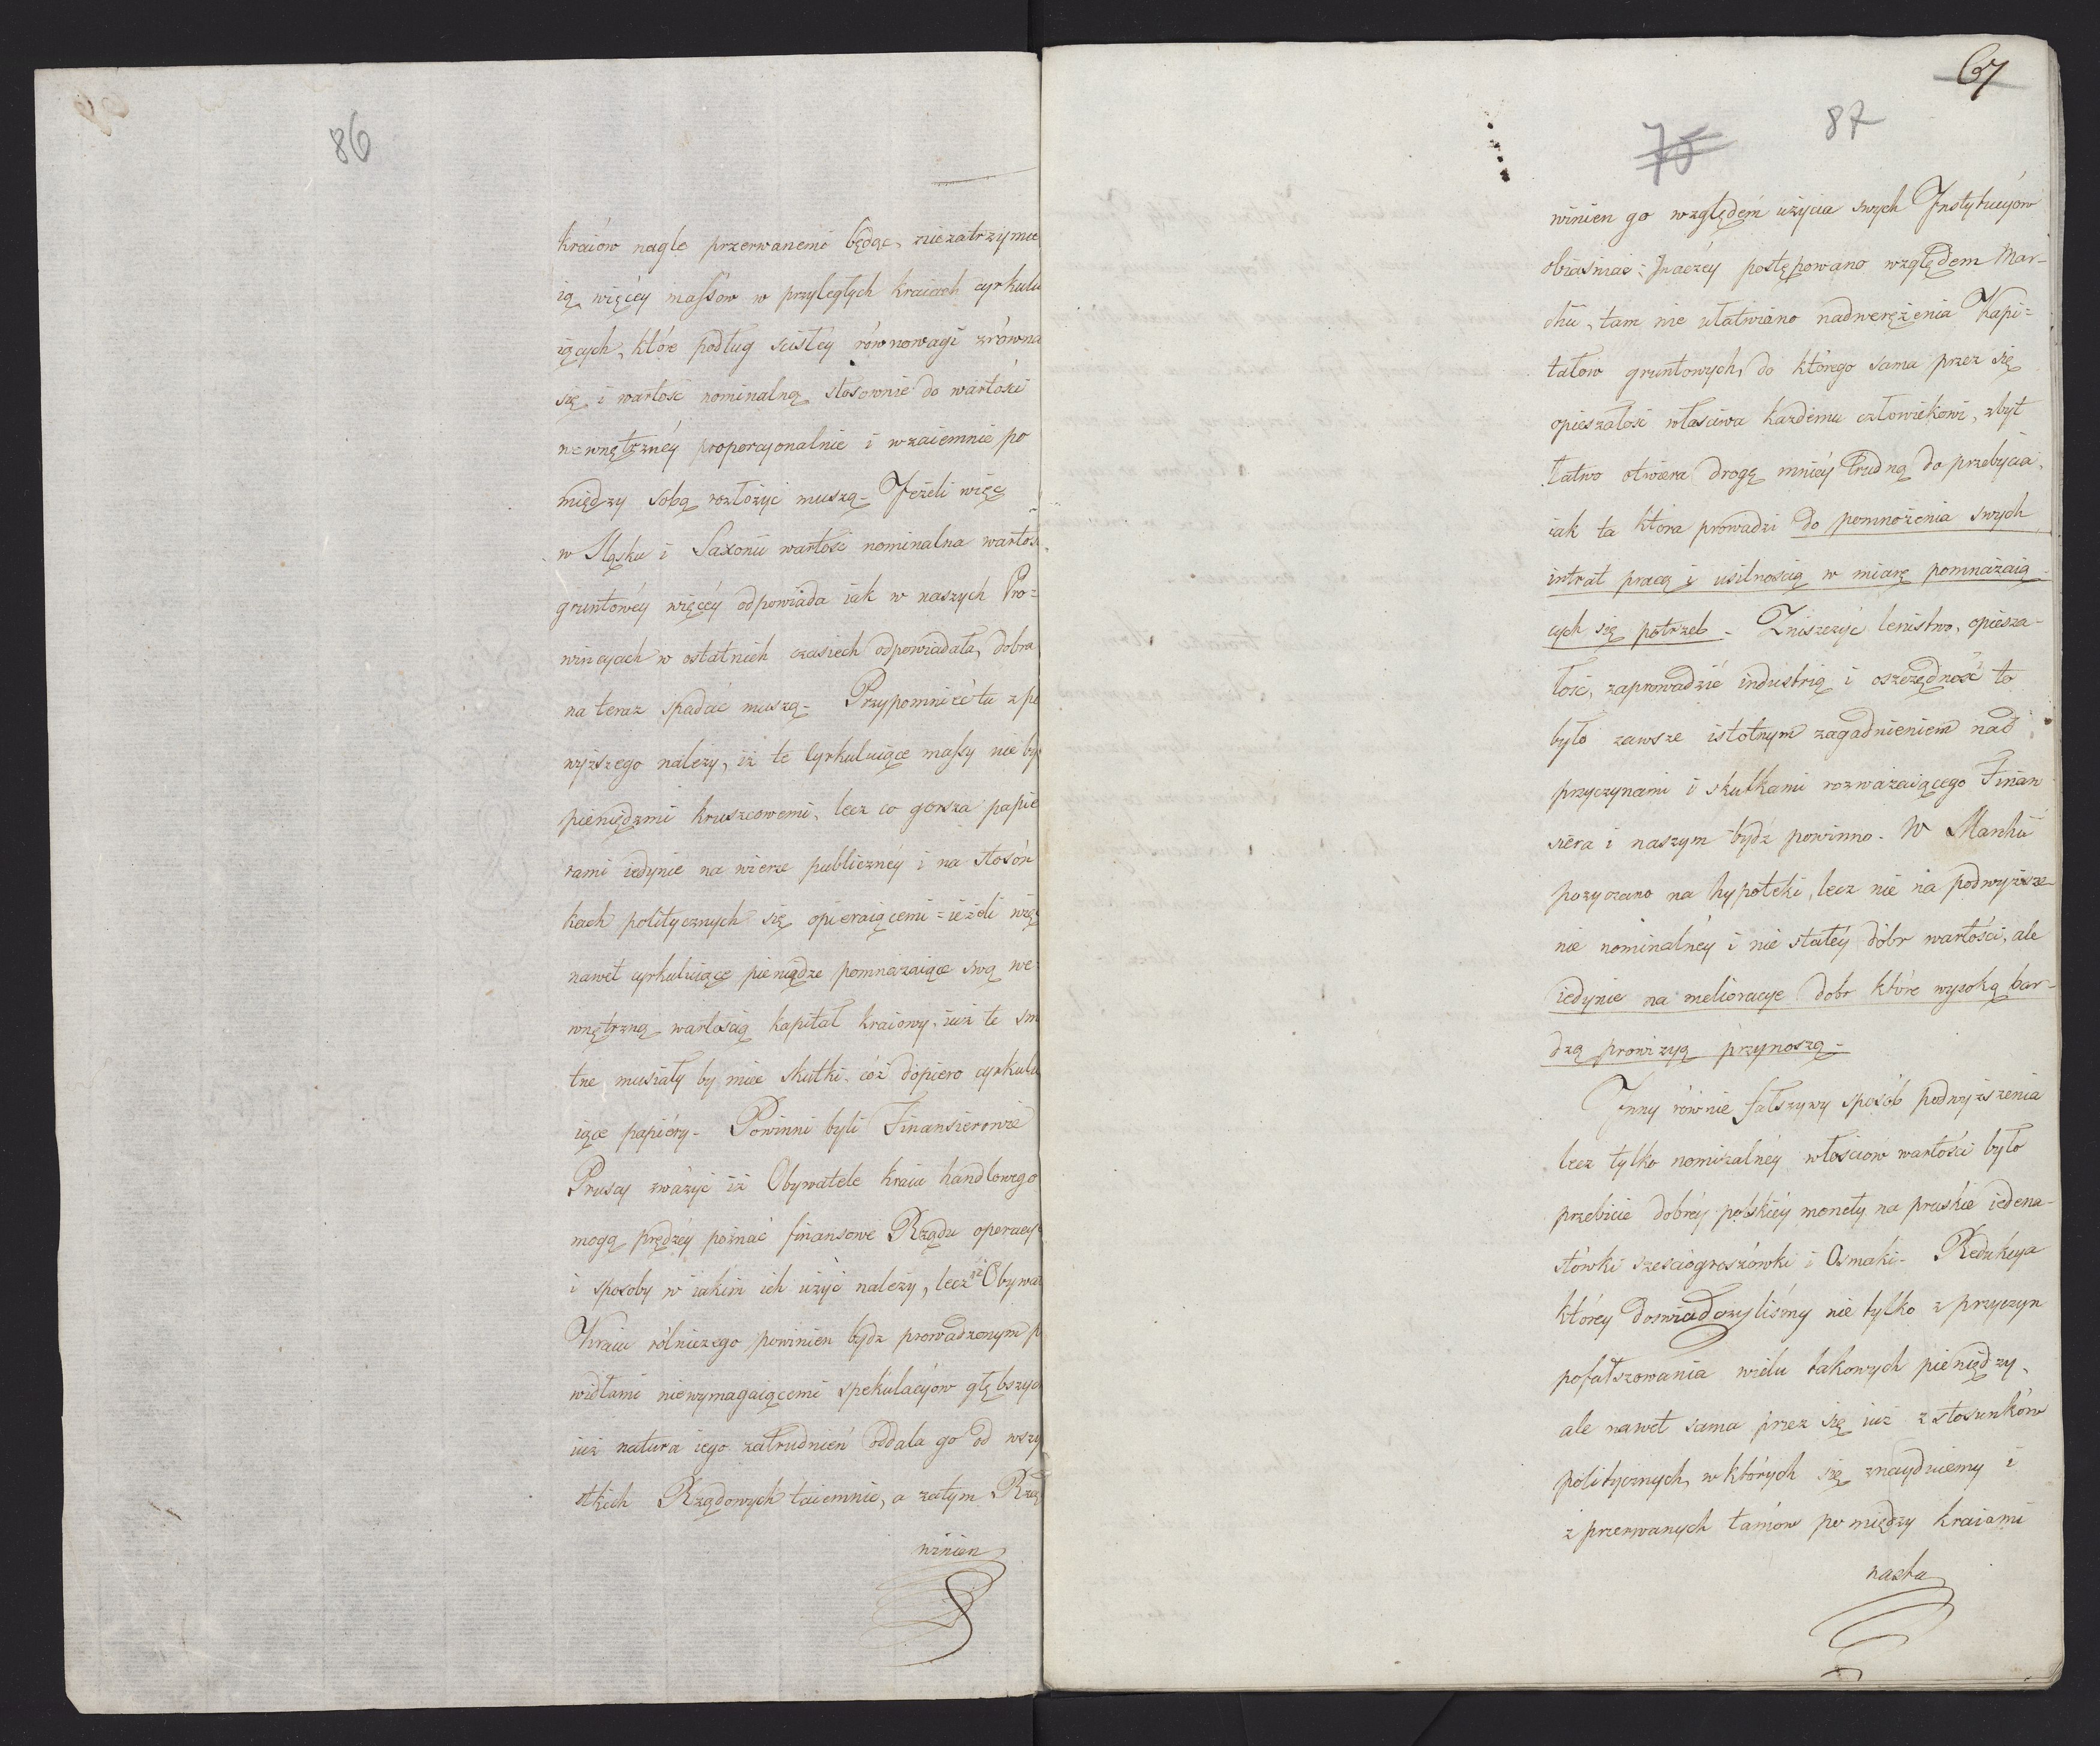 86
kraiów nagle przerwanemi będąc, niezatrzymu
ią więcéy massów w przyległych kraiach cyrkulu
iących, które podług ścisłéy równowagi zrówna
się i wartość nominalną stosownie do wartości
wewnętrznéy proporcjonalnie i wzaiemnie po
między sobą rozłożyć muszą – Jeżeli więc
w Sląsku i Saxonii wartość nominalna wartoś
gruntowéy więcéy odpowiada iak w naszych Pro=
wincyach w ostatnich czasiech odpowiadała, dobra
na teraz spadać muszą – Przypomnieć tu z po
wyższego należy, iż te Cyrkuluiące massy nie by
pieniędzmi kruszcowemi, lecz co gorsza papie
rami iedynie na wierze publicznéy i na stosón
kach politycznych się opieraiącemi = ieżeli więc
nawet cyrkuluiące pieniądze pomnażaiące swą we
wnętrzną wartością kapitał kraiowy, iuż te sm
tne musiały by mieć skutki, cóż dopiero cyrkulu
iące papiéry – Powinni byli Finansierowie
Pruscy zważyć iż Obywatele kraiu handlowego
mogą prędzéy poznać finansowe Rządu operacye
i sposoby w iakim ich użyć należy, lecz iż Obywat
Kraiu rólniczego powinien bydź prowadzonym p
widłami niewymagaiącemi spekulacyów głębszych
iuż natura iego zatrudnień oddala go od wszy
stkich Rządowych taiemnic, a zatym Rzą
winien
67
75
87
winien go względem użycia swych Instytucyów
obiaśniać; Inaczéy postępowano względem Mar-
chii, tam nie ułatwiano nadwerężenia Kapi=
tałów gruntowych, do którego sama przez się
opieszałość właściwa każdemu człowiekowi, zbyt
łatwo otwiera drogę mniéy trudną do przebycia,
iak ta która prowadzi do pomnożenia swych
intrat pracą i usilnością w miarę pomnażaią
cych się potrzeb – Zniszczyć lenistwo, opiesza-
łość, zaprowadzić industrią i oszczędność to
było zawsze istotnym zagadnieniem nad
przyczynami i skutkami rozważaiącego Finan
siera i naszym bydź powinno. W Marchii
pożyczano na hypoteki, lecz nie na podwyższe-
nie nominalnéy i nie stałéy dóbr wartości, ale
iedynie na melioracye dobr które wysoką bar-
dzą prowizyą przynoszą –
Inny równie fałszywy sposób podwyższenia
lecz tylko nominalnéy włościów wartości było
przebicie dobréy polskiéy monety na pruskie iedena-
stówki sześciogroszówki i Osmaki – Redukcya
któréy doswiadczyliśmy nie tylko z przyczyn
pofałszowania wielu takowych pieniędzy,
ale nawet sama przez się iuż z stosunków
politycznych, w których się znayduiemy i
z przerwanych tamów po między kraiami
nasta